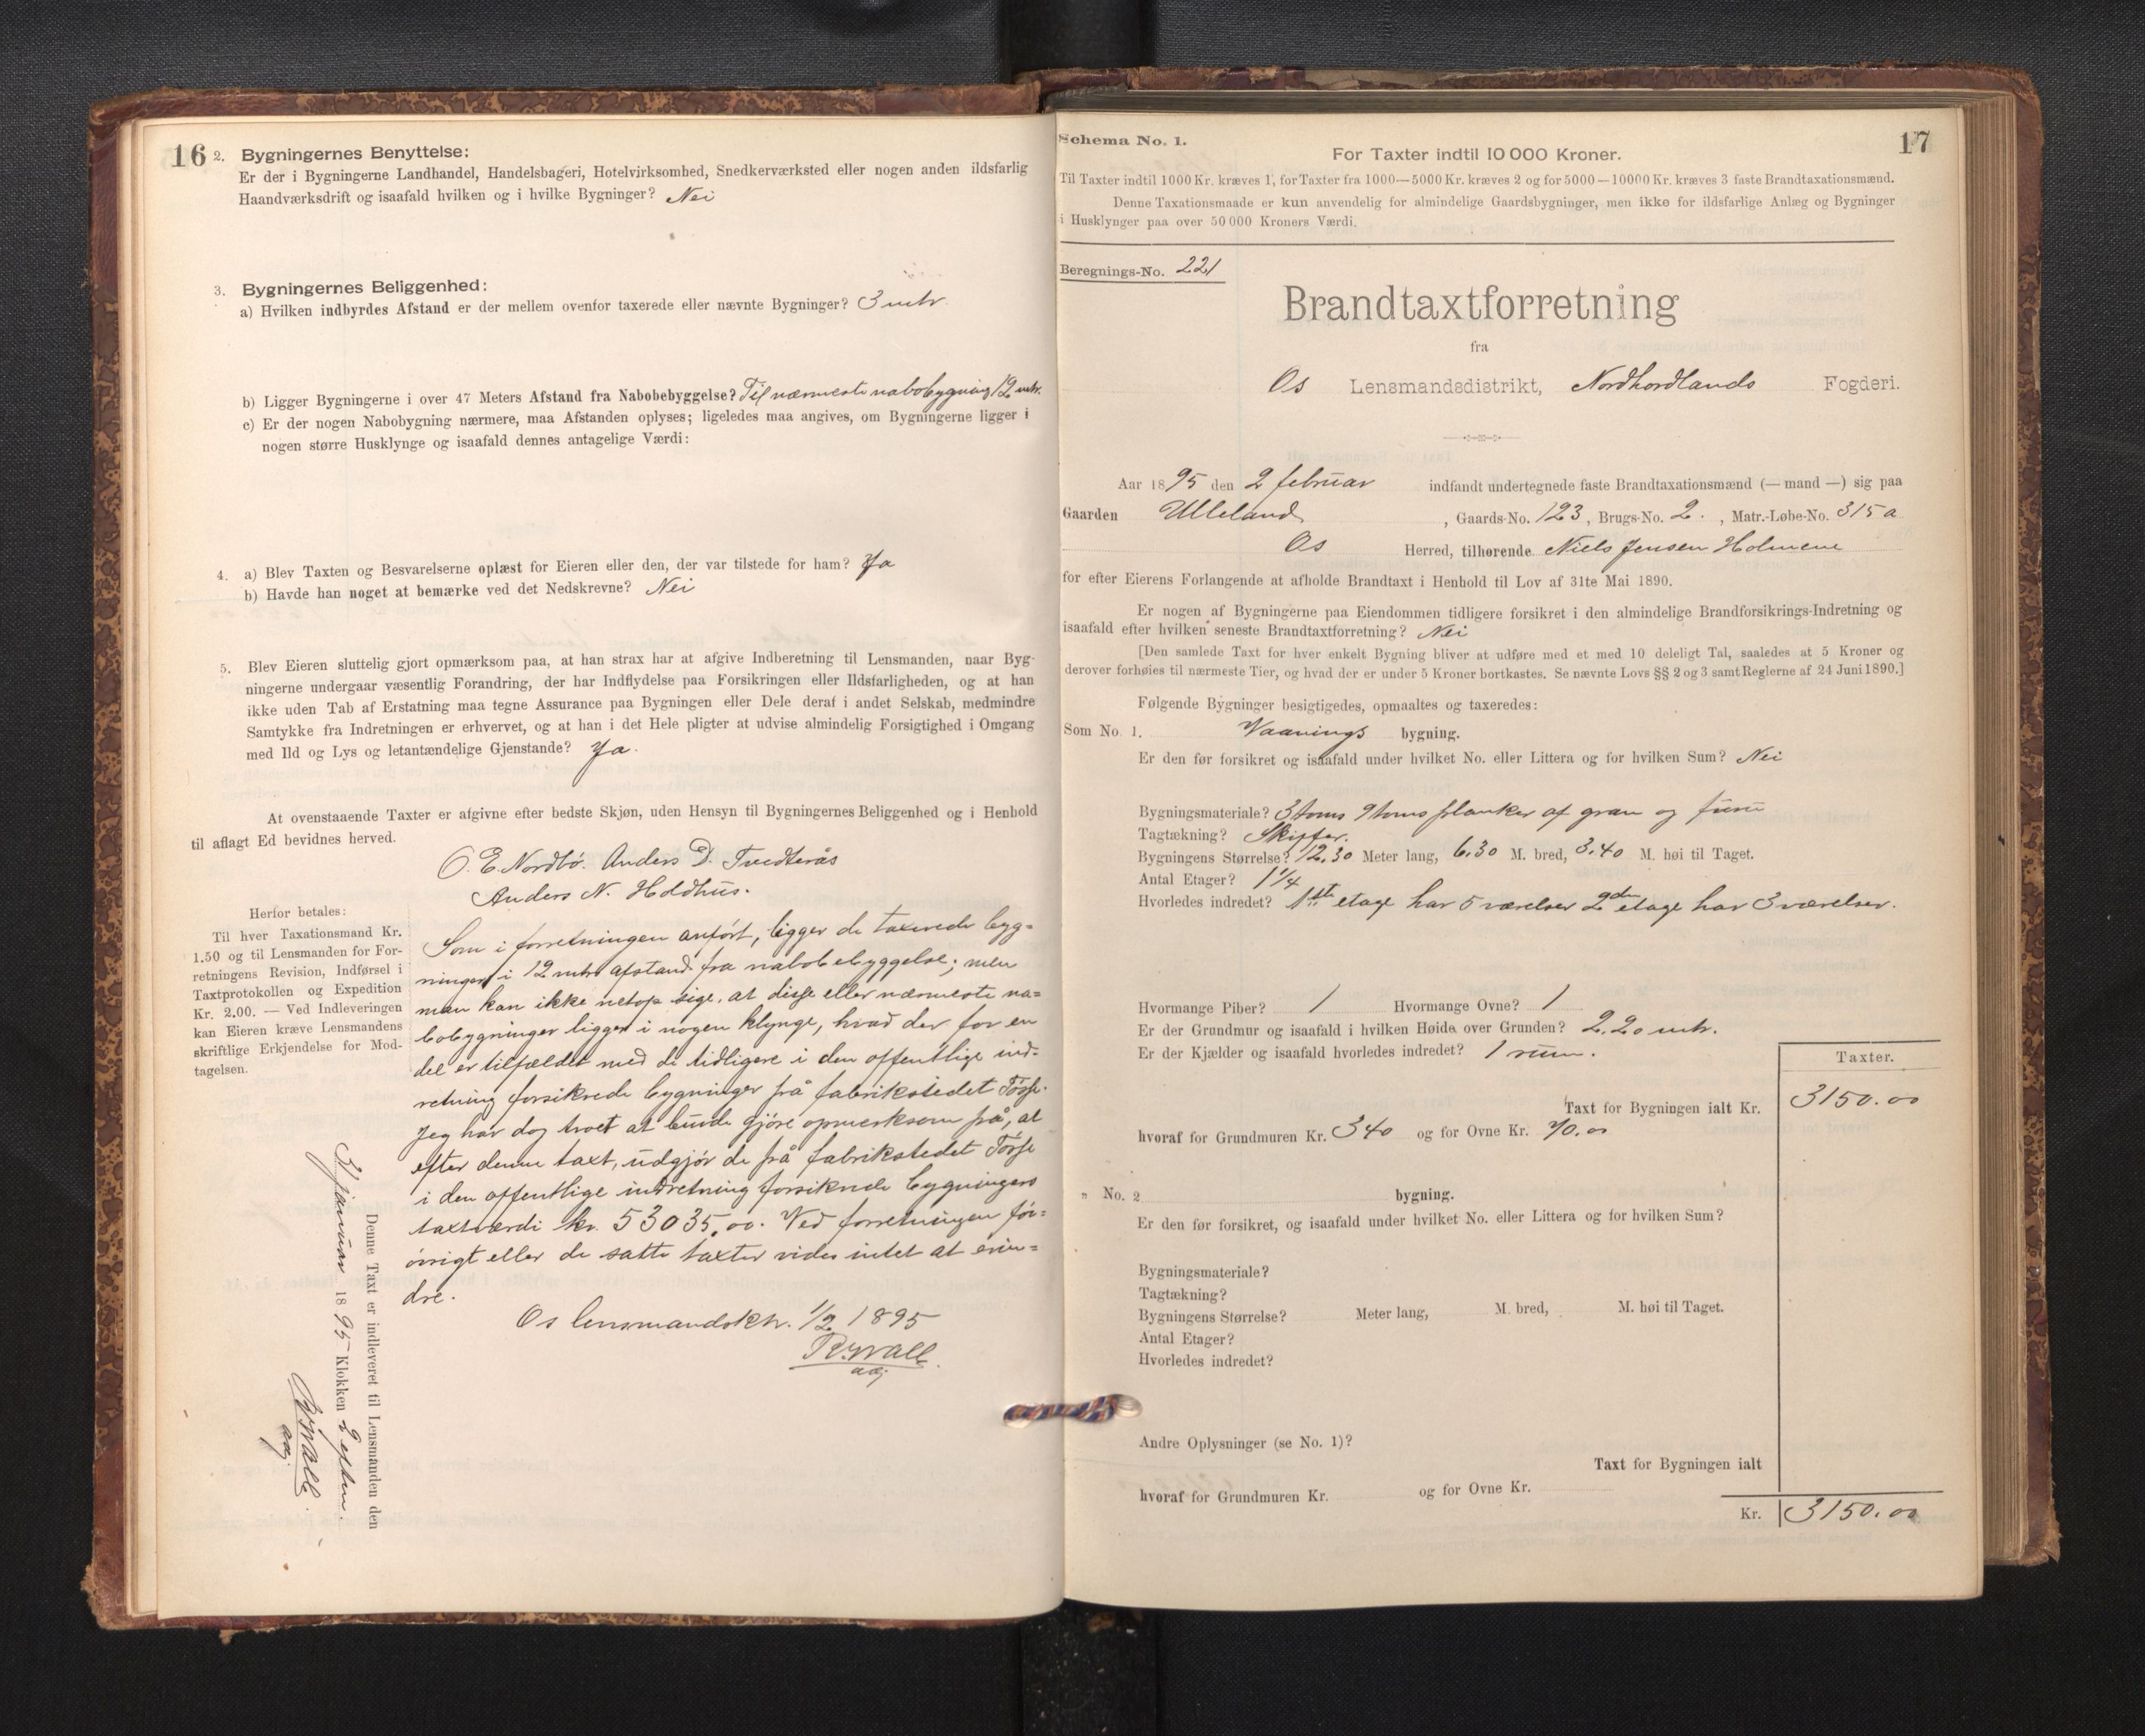 16
2. Bygningernes Benyttelse:
Er der i Bygningerne Landhandel, Handelsbageri, Hotelvirksomhed, Snedkerværksted eller nogen anden ildsfarlig
Haandværksdrift og isaafald hvilken og i hvilke Bygninger? Nei
3. Bygningernes Beliggenhed:
a) Hvilken indbyrdes Afstand er der mellem ovenfor taxerede eller nævnte Bygninger? 3 mtr.
b) Ligger Bygningerne i over 47 Meters Afstand fra Nabobebyggelse? Til nærmeste nabobygning 12 mtr.
c) Er der nogen Nabobygning nærmere, maa Afstanden oplyses; ligeledes maa angives, om Bygningerne ligger i
nogen større Husklynge og isaafald dennes antagelige Værdi:
4. a) Blev Taxten og Besvarelserne oplæst for Eieren eller den, der var tilstede for ham? Ja
b) Havde han noget at bemærke ved det Nedskrevne? Nei
5. Blev Eieren sluttelig gjort opmærksom paa, at han strax har at afgive Indberetning til Lensmanden, naar Byg-
ningerne undergaar væsentlig Forandring, der har Indflydelse paa Forsikringen eller Ildsfarligheden, og at han
ikke uden Tab af Erstatning maa tegne Assurance paa Bygningen eller Dele deraf i andet Selskab, medmindre
Samtykke fra Indretningen er erhvervet, og at han i det Hele pligter at udvise almindelig Forsigtighed i Omgang
med Ild og Lys og letantændelige Gjenstande? Ja.
At ovenstaaende Taxter er afgivne efter bedste Skjøn, uden Hensyn til Bygningernes Beliggenhed og i Henhold
til aflagt Ed bevidnes herved.
O. E. Nordbø. Anders D. Tvedterås
Anders N. Holdhus.
Herfor betales:
Til hver Taxationsmand Kr.
1.50 og til Lensmanden for For-
retningens Revision, Indførsel i
Taxtprotokollen og Expedition
Kr. 2.00. — Ved Indleveringen
kan Eieren kræve Lensmandens
skriftlige Erkjendelse for Mod-
tagelsen.
Som i forretningen anført, ligger de taxerede byg-
ninger i 12 mtrs afstand fra nabobebyggelse; men
man kan ikke netop sige, at disse eller nærmeste na-
bobygninger ligger i nogen klynge, hvad der for en
del er tilfældet med de tidligere i den offentlige ind-
retning forsikrede bygninger på fabrikstedet Tøsse.
Jeg har dog troet at burde gjøre opmerksom på, at
efter denne taxt, udgjør de på fabrikstedet Tøsse
i den offentlige indretning forsikrede bygningers
taxtværdi kr. 53035,00. Ved forretningen før-
øvrigt eller de satte taxter vides intet at erin-
dre.
Os lensmandsktr. 1/2 1895
aaj
Denne Taxt er indleveret til Lensmanden den
31 januar 1895 Klokken 2 eftm.
aaj
Schema No. 1.
17
For Taxter indtil 10 000 Kroner.
Til Taxter indtil 1000 Kr. kræves 1, for Taxter fra 1000—5000 Kr. kræves 2 og for 5000—10000 Kr. kræves 3 faste Brandtaxationsmænd.
Denne Taxationsmaade er kun anvendelig for almindelige Gaardsbygninger, men ikke for ildsfarlige Anlæg og Bygninger
i Husklynger paa over 50 000 Kroners Værdi.
Beregnings-No. 221
Brandtaxtforretning
fra
Os Lensmandsdistrikt, Nordhordlands Fogderi.
Aar 1895 den 2 februar indfandt undertegnede faste Brandtaxationsmænd (— mand —) sig paa
Gaarden Ulleland, Gaards-No. 123, Brugs-No. 2., Matr.-Løbe-No. 315 a
Os Herred, tilhørende Niels Jensen Holmene
for efter Eierens Forlangende at afholde Brandtaxt i Henhold til Lov af 31te Mai 1890.
Er nogen af Bygningerne paa Eiendommen tidligere forsikret i den almindelige Brandforsikrings-Indretning og
isaafald efter hvilken seneste Brandtaxtforretning? Nei
[Den samlede Taxt for hver enkelt Bygning bliver at udføre med et med 10 deleligt Tal, saaledes at 5 Kroner og
derover forhøies til nærmeste Tier, og hvad der er under 5 Kroner bortkastes. Se nævnte Lovs §§ 2 og 3 samt Reglerne af 24 Juni 1890.]
Følgende Bygninger besigtigedes, opmaaltes og taxeredes:
Som No. 1. Vaanings bygning.
Er den før forsikret og isaafald under hvilket No. eller Littera og for hvilken Sum? Nei
Bygningsmateriale? 3 toms 9 toms planker af gran og furu
Tagtækning? Skifer.
Bygningens Størrelse? 12.30 Meter lang, 6.30 M. bred, 3.40 M. høi til Taget.
Antal Etager? 1 1/4
Hvorledes indredet? 1ste etage har 5 værelser 2den etage har 3 værelser.
Hvormange Piber? 1 Hvormange Ovne? 1
Er der Grundmur og isaafald i hvilken Høide over Grunden? 2.20 mtr.
Er der Kjælder og isaafald hvorledes indredet? 1 rum.
Taxter.
Taxt for Bygningen ialt Kr. 3150.00
hvoraf for Grundmuren Kr. 340 og for Ovne Kr. 70.00
" No. 2 bygning.
Er den før forsikret, og isaafald under hvilket No. eller Littera og for hvilken Sum?
Bygningsmateriale?
Tagtækning?
Bygningens Størrelse? Meter lang, M. bred, M. høi til Taget.
Antal Etager?
Hvorledes indredet?
Andre Oplysninger (se No. 1)?
Taxt for Bygningen ialt
hvoraf for Grundmuren Kr. og for Ovne Kr.
Kr. 3150.00